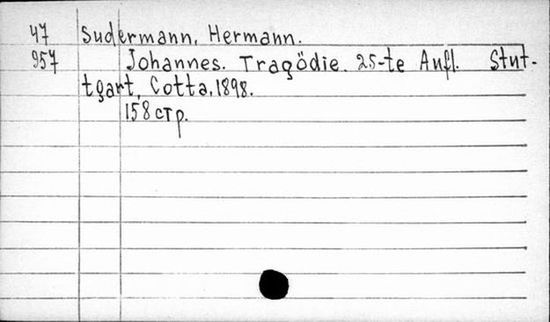 47 Sudermann, Hermann.
957 Johannes. Tragödie. 25-te Aufl. Stut-
tgart, Cotta, 1898.
158 стр.